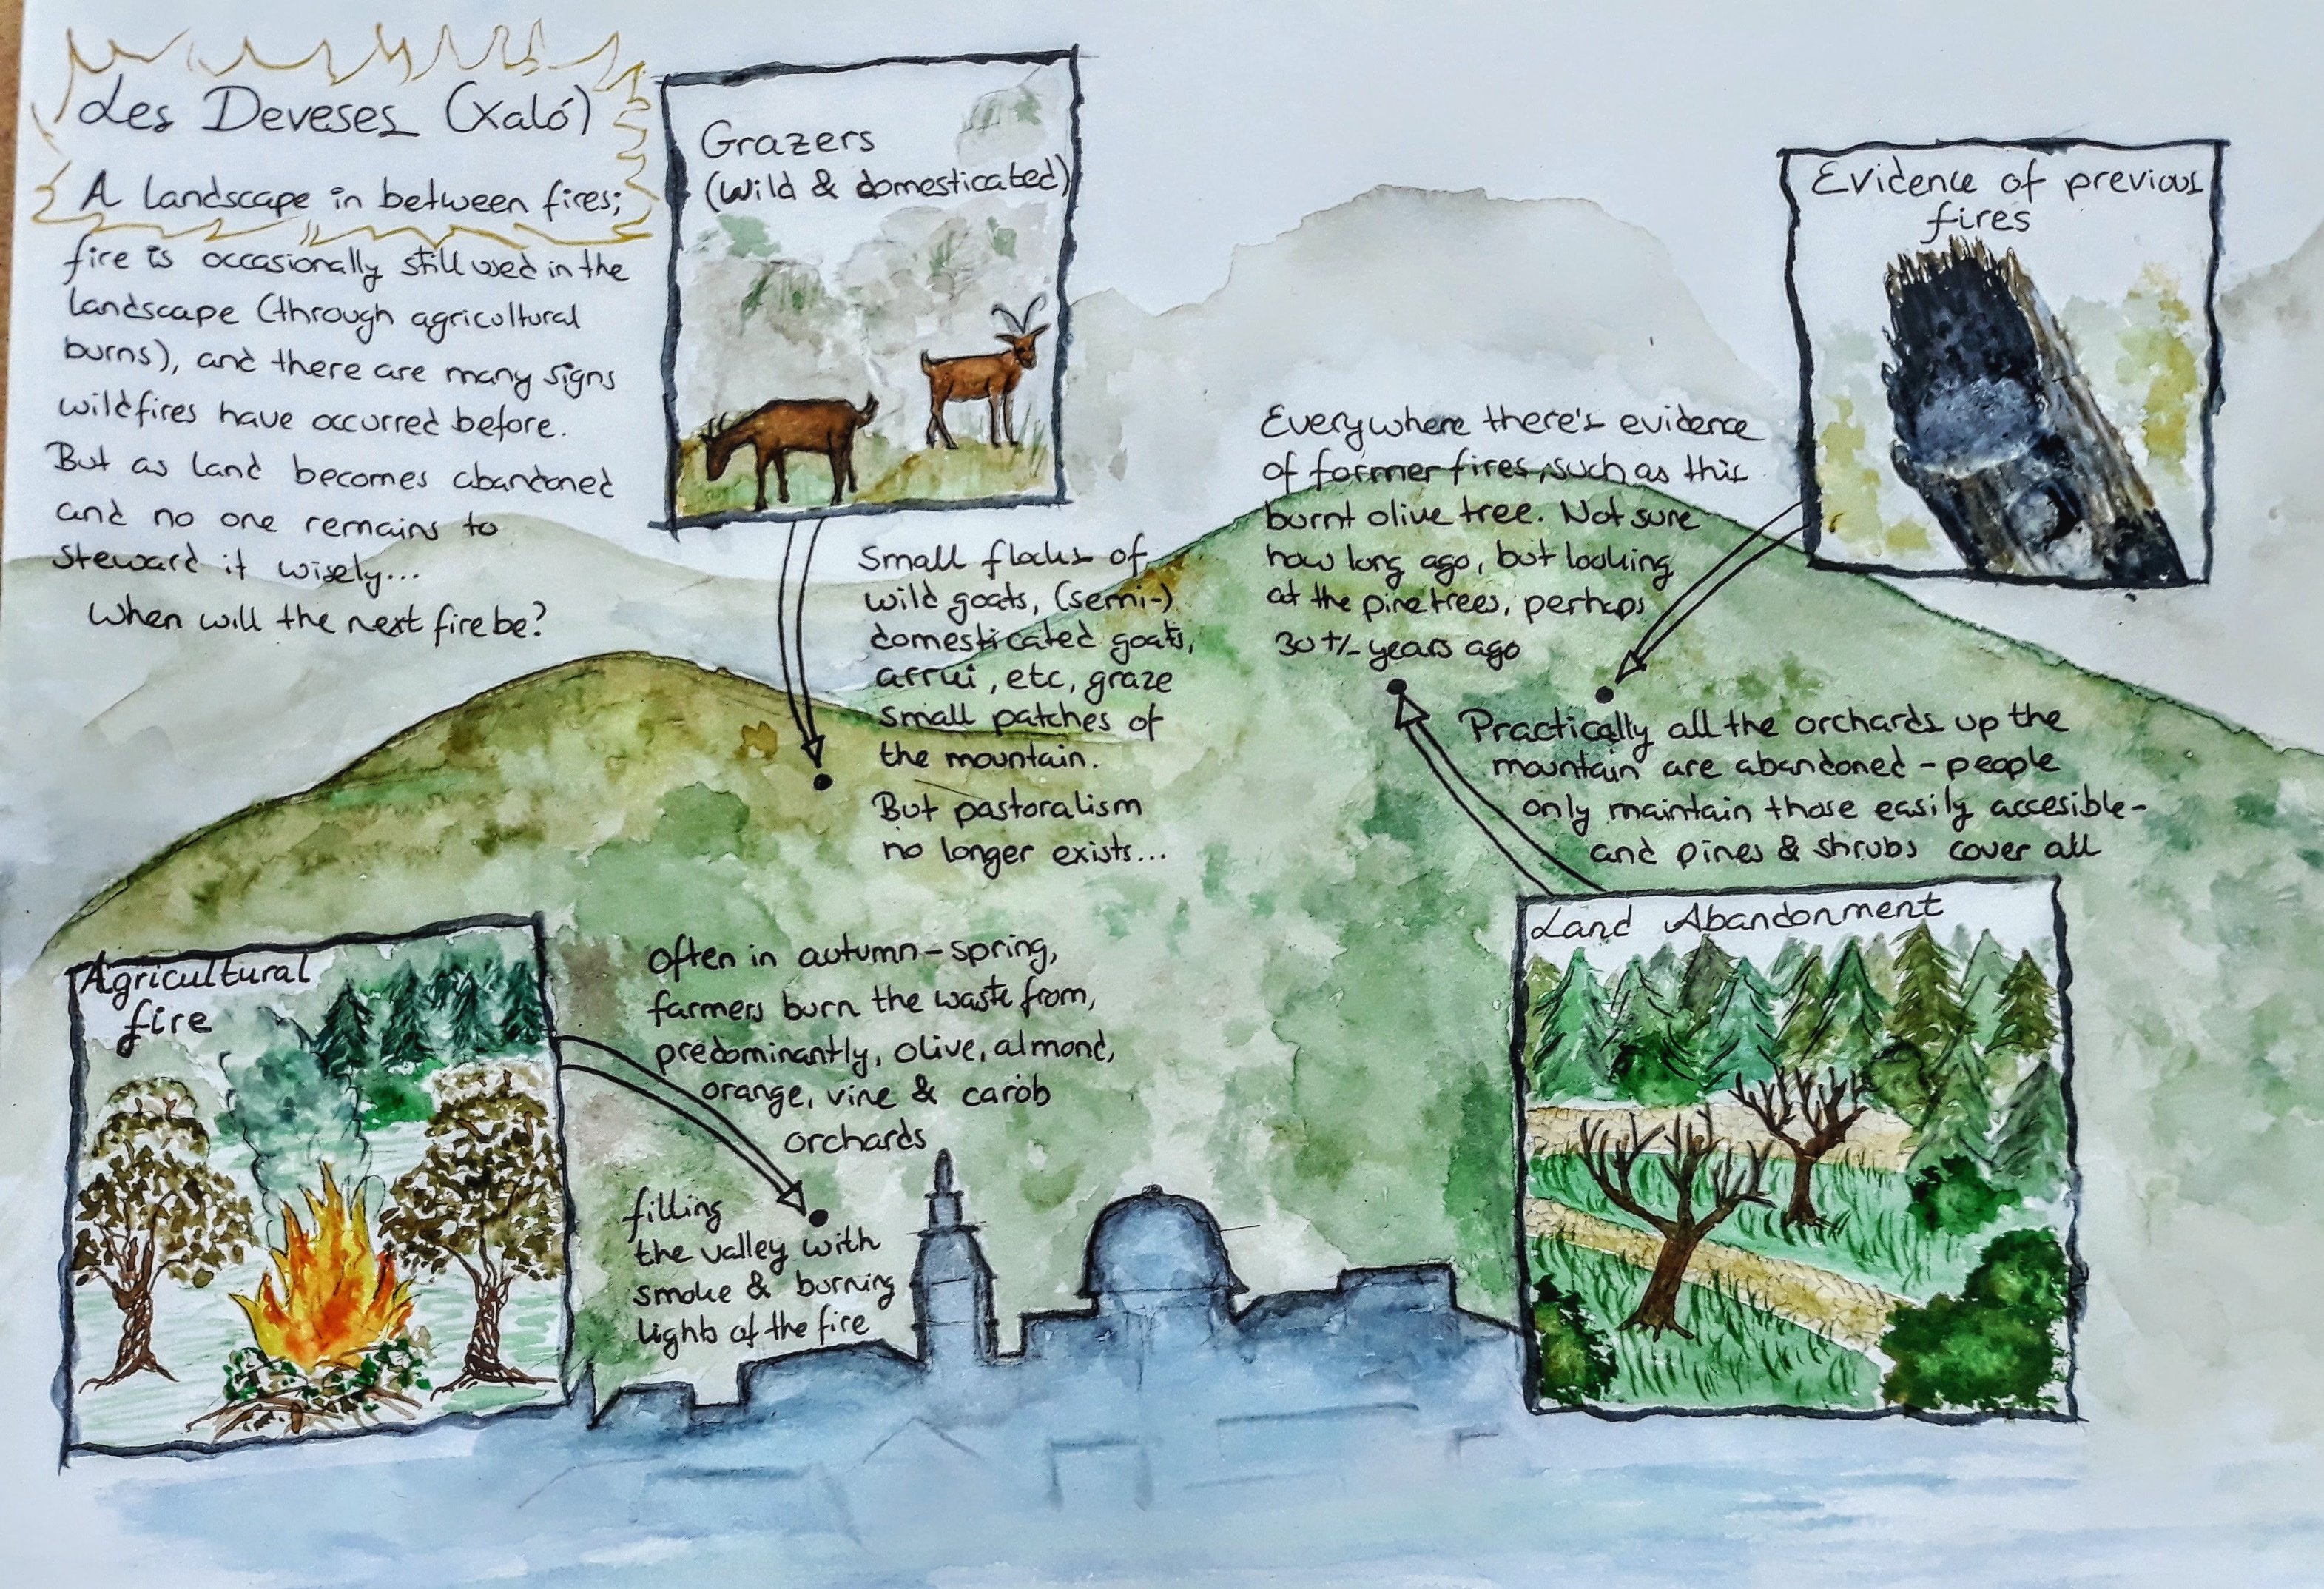 Les Deveses (Xaló)
A landscape in between fires;
fire is occasionally still used in the
landscape (through agricultural
burns), and there are many signs
wildfires have occurred before.
But as land becomes abandoned
and no one remains to
steward it wisely...
When will the next fire be?
Grazers
(wild & domesticated)
Small flocks of
wild goats, (semi-)
domesticated goats,
arrui, etc, graze
small patches of
the mountain.
But pastoralism
no longer exists...
Evidence of previous
fires
Everywhere there's evidence
of former fires, such as this
burnt olive tree. Not sure
how long ago, but looking
at the pine trees, perhaps
30 +/- years ago
Practically all the orchards up the
mountain are abandoned - people
only maintain those easily accesible -
and pines & shrubs cover all
Land Abandonment
Agricultural
fire
Often in autumn - spring,
farmers burn the waste from,
predominantly, olive, almond,
orange, vine & carob
orchards
filling
the valley with
smoke & burning
lights of the fire